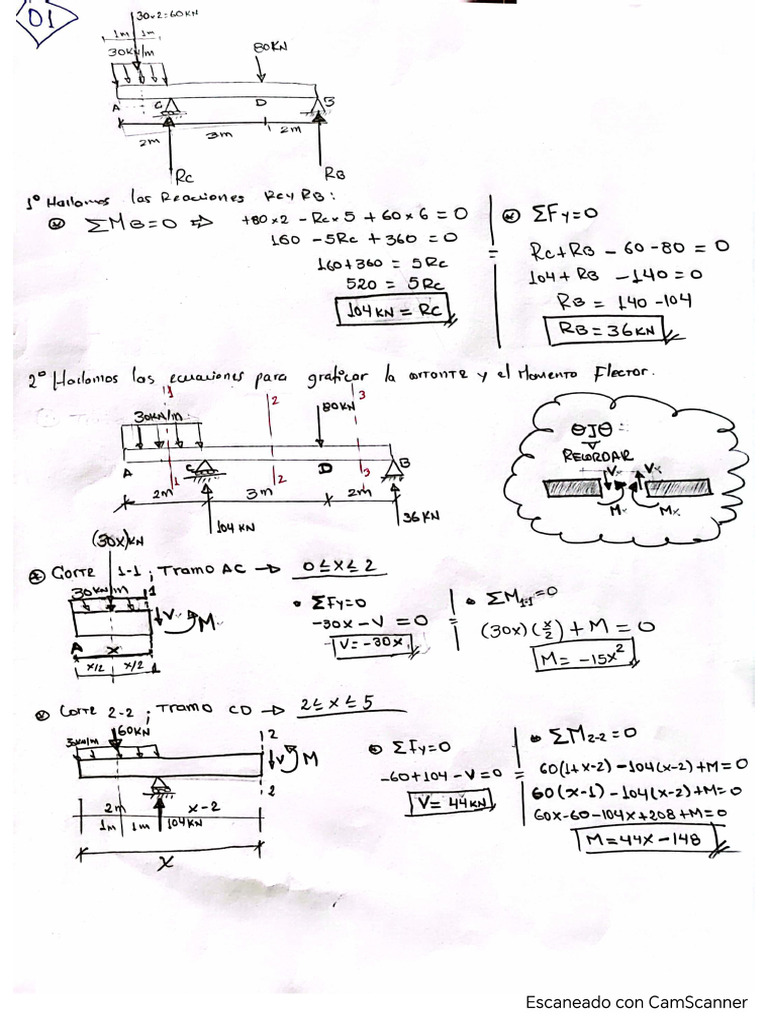 01
30x2=60KN
1m 1m
30KN/m
80KN
A C D B
2m 3m 2m
RC RB
1º Hallamos las Reacciones RC y RB:
ΣMB=0 ⇒ +80×2 - RC×5 + 60×6 = 0
160 - 5RC + 360 = 0
160+360 = 5RC
520 = 5RC
104KN = RC
ΣFy=0
RC+RB - 60-80 = 0
104+RB - 140 = 0
RB = 140-104
RB = 36KN
2º Hallamos las ecuaciones para graficar la cortante y el Momento Flector.
30KN/m
1 2 80KN 3
A C D B
1 2 3
2m 3m 2m
104KN 36KN
OJO:
RECORDAR
Vx Vx
Mx Mx
(30x)KN
Corte 1-1; Tramo AC → 0≤x≤2
30KN/m 1
V M
A x
x/2 x/2 1
ΣFy=0
-30x-V = 0
V = -30x
=
ΣM1-1=0
(30x)(x/2) + M = 0
M = -15x²
Corte 2-2; Tramo CD → 2≤x≤5
60KN
30KN/m 2
V M
2
2m x-2
1m 1m 104KN
x
ΣFy=0
-60+104-V=0
V= 44KN
=
ΣM2-2=0
60(1+x-2)-104(x-2)+M=0
60(x-1)-104(x-2)+M=0
60x-60-104x+208+M=0
M=44x-148
Escaneado con CamScanner